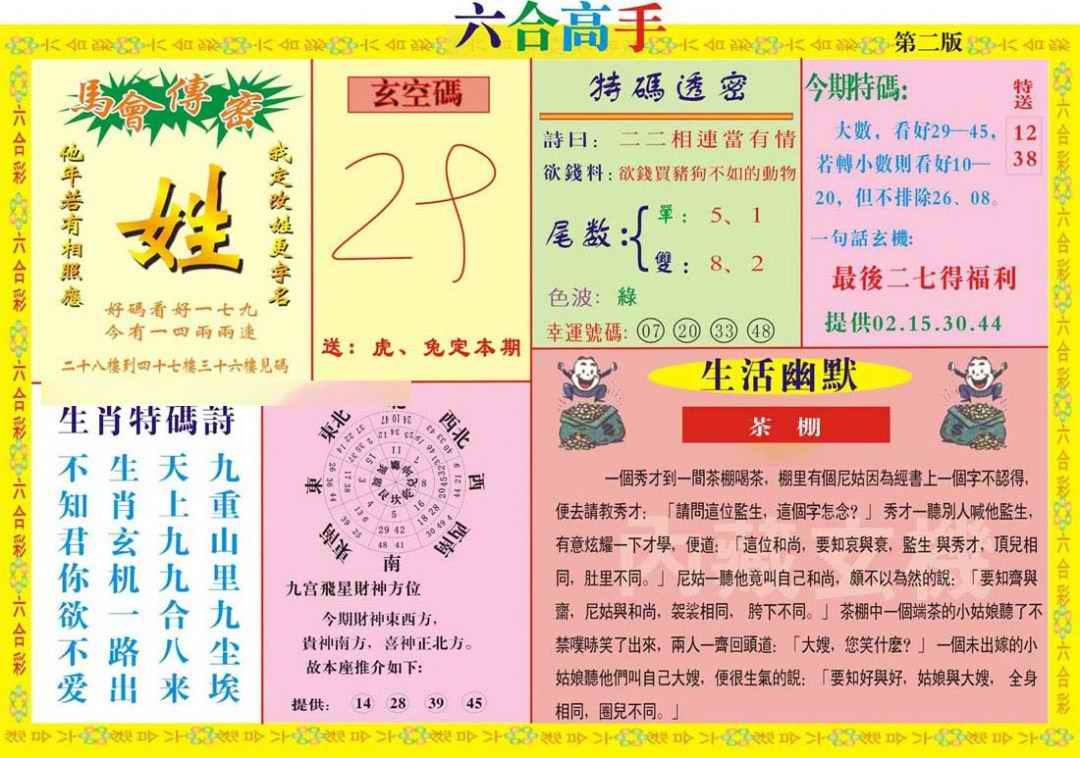 六合高手
第二版
馬會傳密
他年若有相照應
姓
我定改姓更字名
好碼看好一七九
今有一四兩兩連
二十八樓到四十七樓三十六樓見碼
玄空碼
29
送：虎、兔定本期
特碼透密
詩曰：二二相連當有情
欲錢料：欲錢買豬狗不如的動物
尾数：
單：5、1
雙：8、2
色波：綠
幸運號碼：07 20 33 48
今期特碼：
大數，看好29—45，
若轉小數則看好10—
20，但不排除26、08。
特送
12
38
一句話玄機：
最後二七得福利
提供02.15.30.44
生肖特碼詩
九重山里九尘埃
天上九九合八来
生肖玄机一路出
不知君你欲不爱
東北
西北
東
西
東南
西南
南
九宫飛星財神方位
今期財神東西方，
貴神南方，喜神正北方。
故本座推介如下：
提供：14 28 39 45
生活幽默
茶棚
一個秀才到一間茶棚喝茶，棚里有個尼姑因為經書上一個字不認得，
便去請教秀才：「請問這位監生，這個字怎念？」秀才一聽別人喊他監生，
有意炫耀一下才學，便道：「這位和尚，要知哀與衰，監生與秀才，頂兒相
同，肚里不同。」尼姑一聽他竟叫自己和尚，頗不以為然的說：「要知齊與
齋，尼姑與和尚，袈裟相同，胯下不同。」茶棚中一個端茶的小姑娘聽了不
禁噗哧笑了出來，兩人一齊回頭道：「大嫂，您笑什麼？」一個未出嫁的小
姑娘聽他們叫自己大嫂，便很生氣的說：「要知好與好，姑娘與大嫂，全身
相同，圈兒不同。」
内藏玄機
六合彩